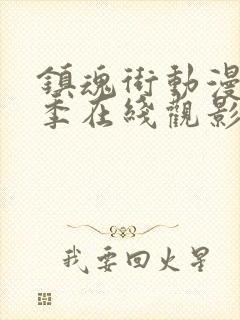 鎮魂街動漫
季在綫觀影
我要回火星